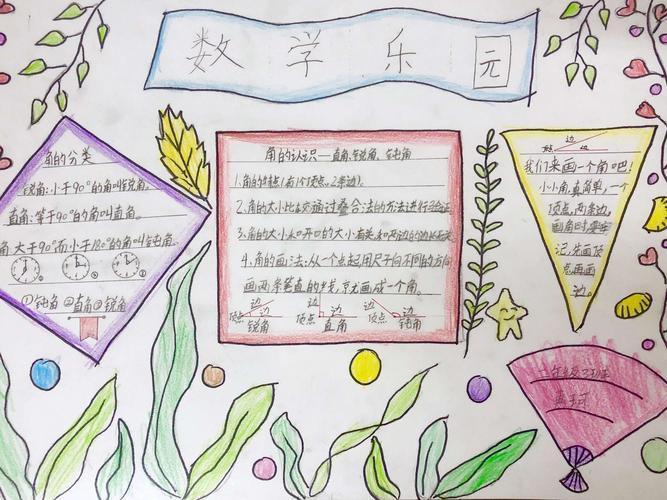 数学乐园
角的分类
锐角:小于90°的角叫锐角。
直角:等于90°的角叫直角。
角:大于90°而小于180°的角叫钝角。
① ② ③
①钝角 ②直角 ③锐角
角的认识——直角、锐角、钝角
1.角的特点(有1个顶点,2条边)。
2、角的大小比较通过叠合法的方法进行
3、角的大小和开口的大小有关,和两边的
4、角的画法:从一个点起用尺子向不同的方向
画两条笔直的线,就画成一个角。
边 边 边
顶点 边 顶点 边 顶点 边
锐角 直角 钝角
边
顶点 边
我们来画一个角吧!
小小角,真简单,一个
顶点,两条边,
画角时要牢
记,先画顶
点再画
边。
二年级